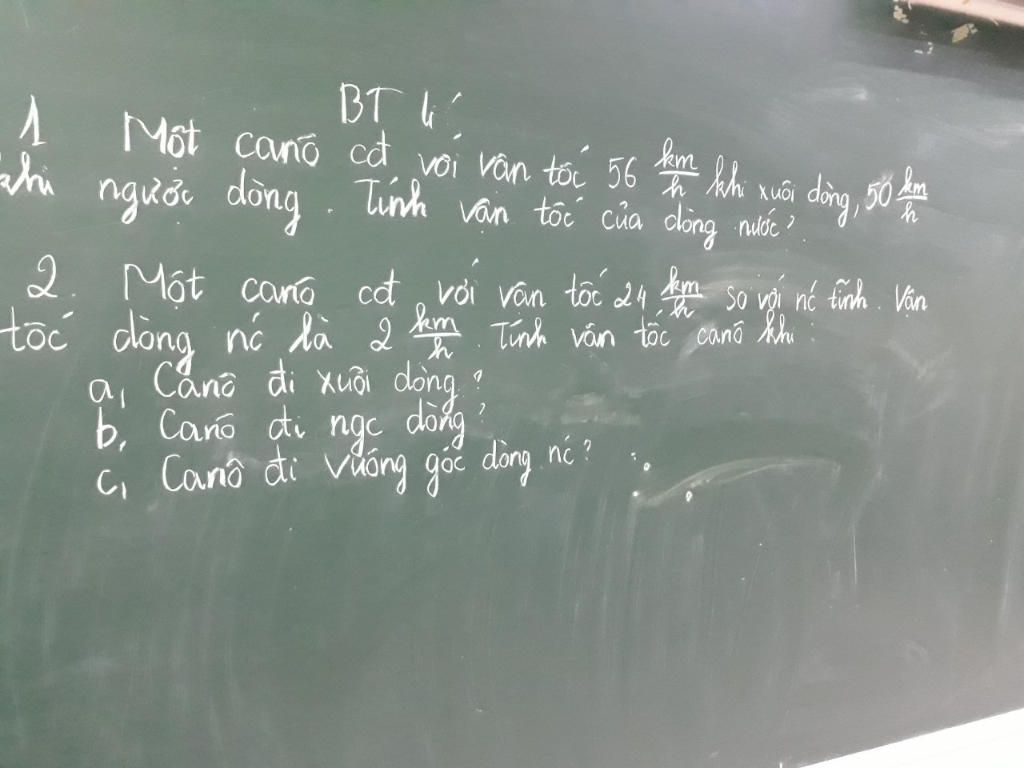 BT Lí
1 Một canô cđ với vận tốc 56 km/h khi xuôi dòng, 50 km/h
khi ngược dòng. Tính vận tốc của dòng nước?
2. Một canô cđ với vận tốc 24 km/h so với nc tĩnh. Vận
tốc dòng nc là 2 km/h. Tính vận tốc canô khi:
a, Canô đi xuôi dòng?
b, Canô đi ngc dòng?
c, Canô đi vuông góc dòng nc?